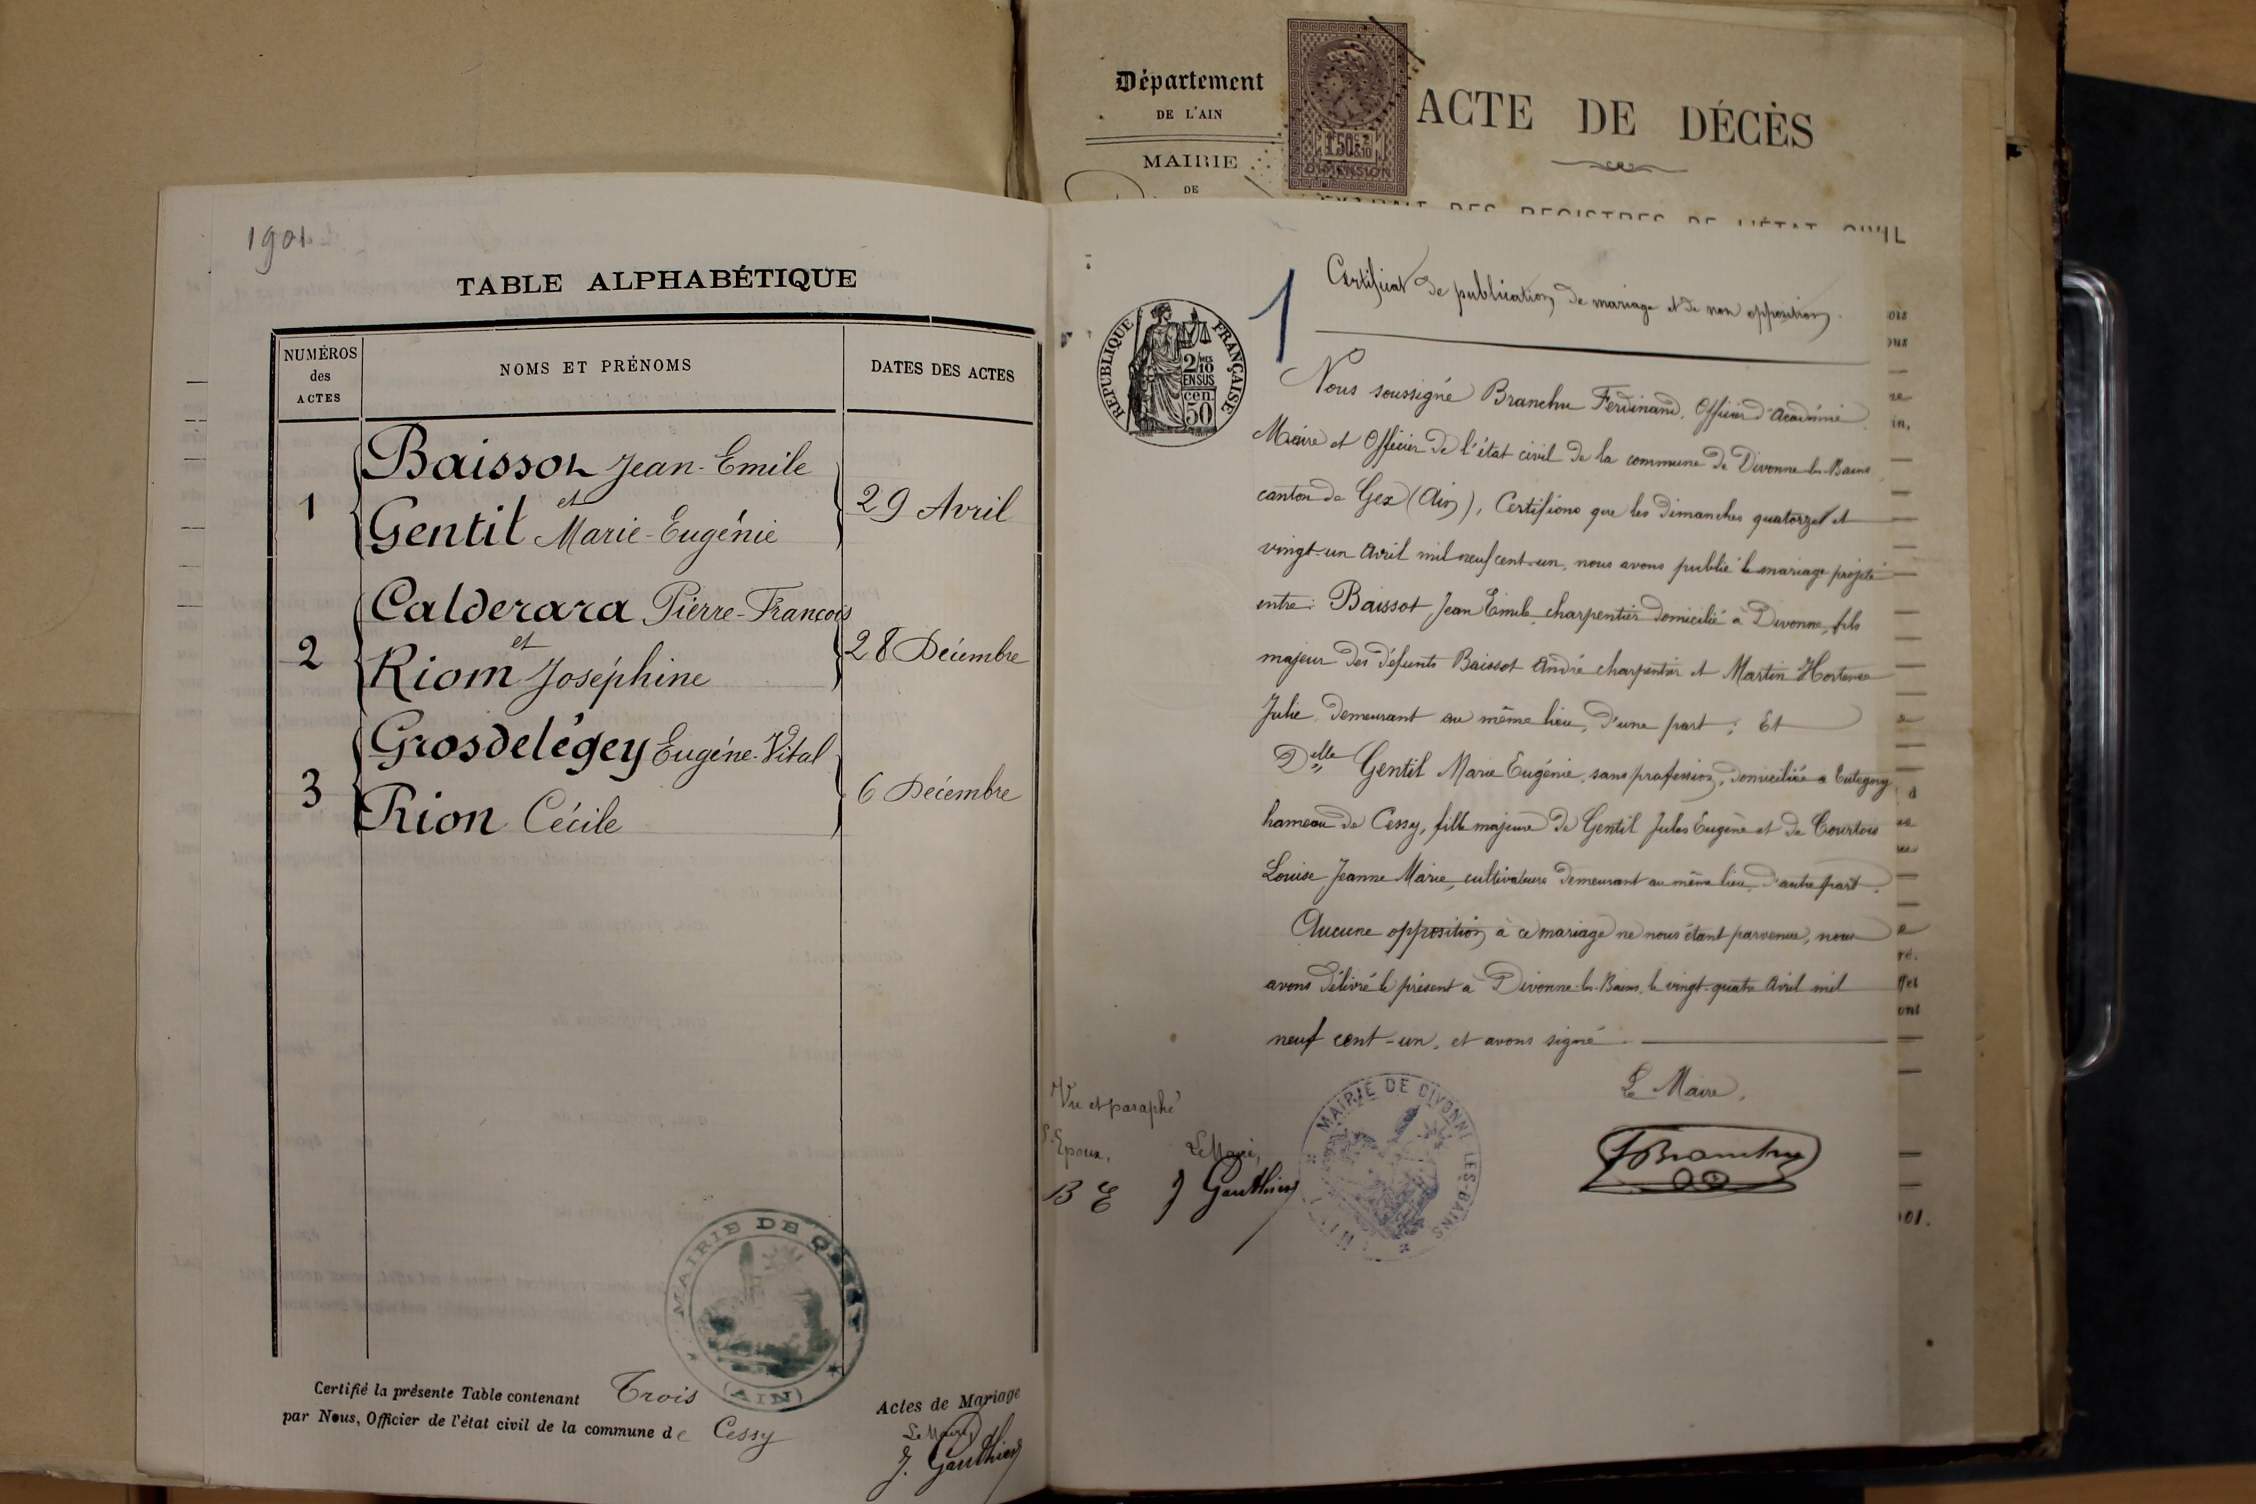 1901
TABLE ALPHABÉTIQUE
NUMÉROS
des
ACTES
NOMS ET PRÉNOMS
DATES DES ACTES
Baissot Jean-Emile
1
et
29 Avril
Gentil Marie-Eugénie
Calderara Pierre-François
2
et
28 Décembre
Riom Joséphine
Grosdelégey Eugéne-Vital
3
6 Décembre
Rion Cécile
MAIRIE DE CESSY
(AIN)
Certifié la présente Table contenant Trois Actes de Mariage
par Nous, Officier de l'état civil de la commune de Cessy
Le Maire,
J. Gauthier
Département
DE L'AIN
MAIRIE
DE
1F50C 2/10
DIMENSION
ACTE DE DÉCÈS
EXTRAIT DES REGISTRES DE L'ÉTAT CIVIL
1
Certificat de publication de mariage et de non opposition.
RÉPUBLIQUE FRANÇAISE
2/10 MES
EN SUS
cen.
50
Nous soussigné Branchu Ferdinand, Officier d'Académie
Maire et Officier de l'état civil de la commune de Divonne-les-Bains
canton de Gex (Ain), Certifions que les dimanches quatorze et
vingt-un Avril mil neuf cent-un, nous avons publié le mariage projeté
entre: Baissot Jean Emile, charpentier domicilié à Divonne, fils
majeur des défunts Baissot André charpentier et Martin Hortense
Julie, demeurant au même lieu, d'une part; Et
Delle Gentil Marie Eugénie, sans profession, domiciliée à
hameau de Cessy, fille majeure de Gentil Jules Eugène et de Courtois
Louise Jeanne Marie, cultivateurs demeurant au même lieu, d'autre part.
Aucune opposition à ce mariage ne nous étant parvenue, nous
avons délivré le présent à Divonne-les-Bains, le vingt-quatre Avril mil
neuf cent-un, et avons signé.
Le Maire,
Vu et paraphé
L'Epoux,
Le Maire,
B E
J Gauthier
MAIRIE DE DIVONNE-LES-BAINS
(AIN)
FBranchu
ois
ous
re
in,
ffet
ont
01.